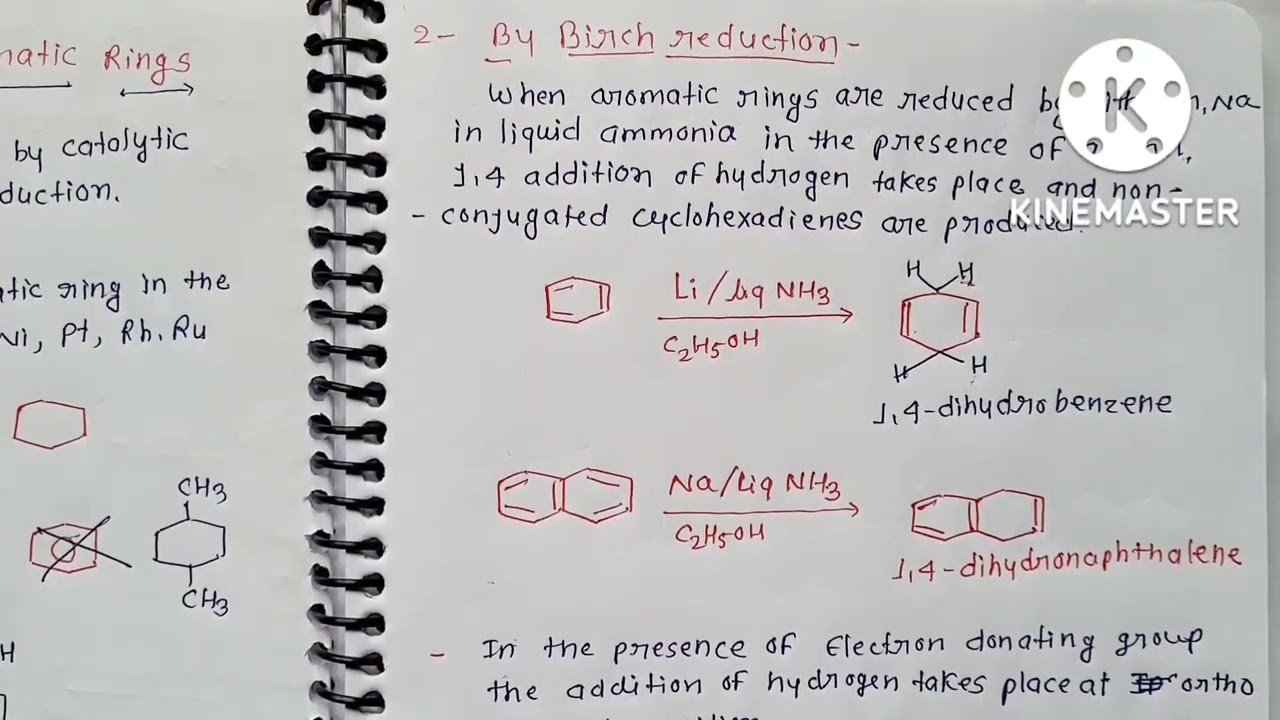 matic Rings
by catalytic
duction.
tic ring in the
Ni, Pt, Rh, Ru
CH3
CH3
H
2- By Birch reduction-
When aromatic rings are reduced by Na
in liquid ammonia in the presence of
1,4 addition of hydrogen takes place and non-
- conjugated cyclohexadienes are produced.
K
KINEMASTER
Li/liq NH3
C2H5OH
H H
H H
1,4-dihydrobenzene
Na/Liq NH3
C2H5OH
1,4-dihydronaphthalene
- In the presence of Electron donating group
the addition of hydrogen takes place at ortho